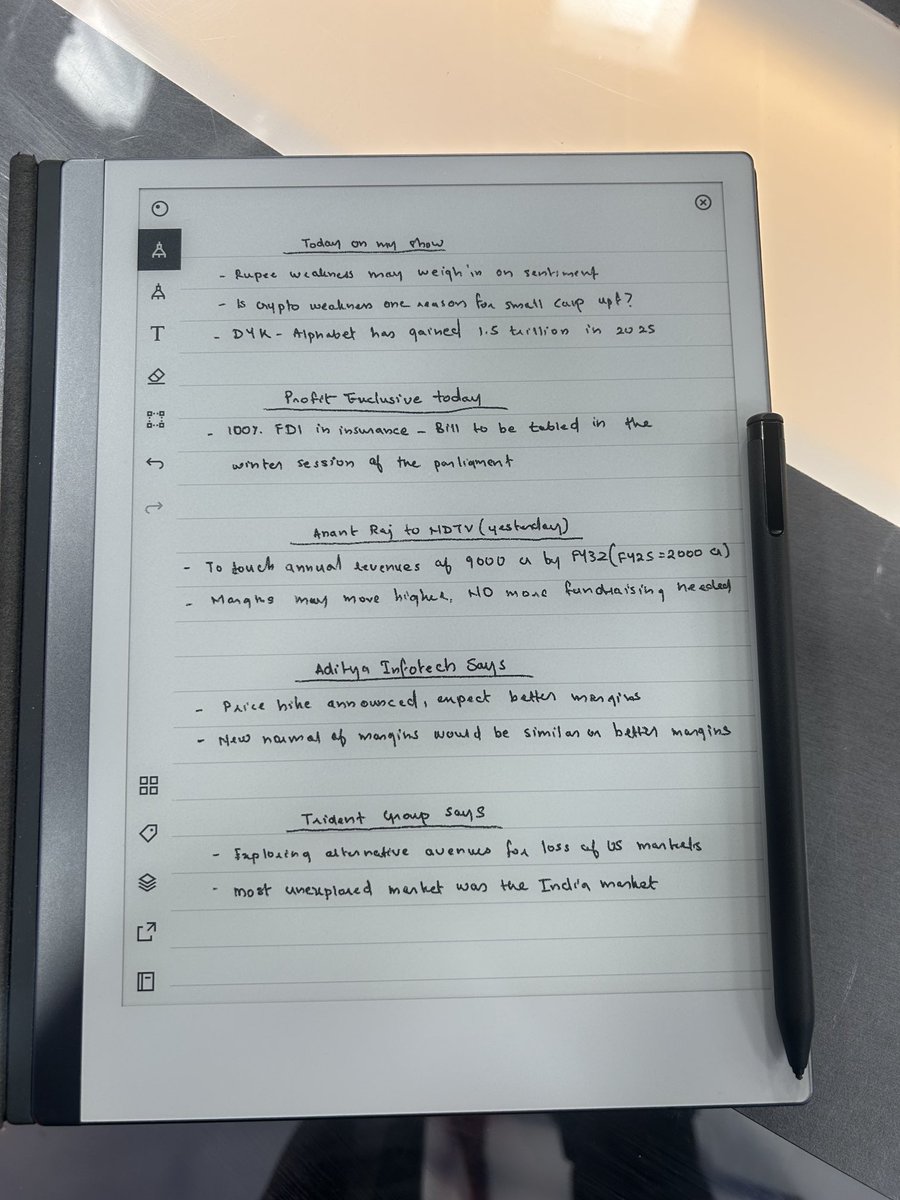 Today on my show
- Rupee weakness may weigh in on sentiment
- Is crypto weakness one reason for small cap upt?
- DYK - Alphabet has gained 1.5 trillion in 2025
Profit Exclusive today
- 100% FDI in insurance - Bill to be tabled in the
winter session of the parliament
Anant Raj to NDTV (yesterday)
- To touch annual revenues of 9000 cr by FY32 (FY25 = 2000 cr)
- Margins may move higher, NO more fundraising needed
Aditya Infotech Says
- Price hike announced, expect better margins
- New normal of margins would be similar or better margins
Trident Group says
- Exploring alternative avenues for loss of US markets
- most unexplored market was the India market
T